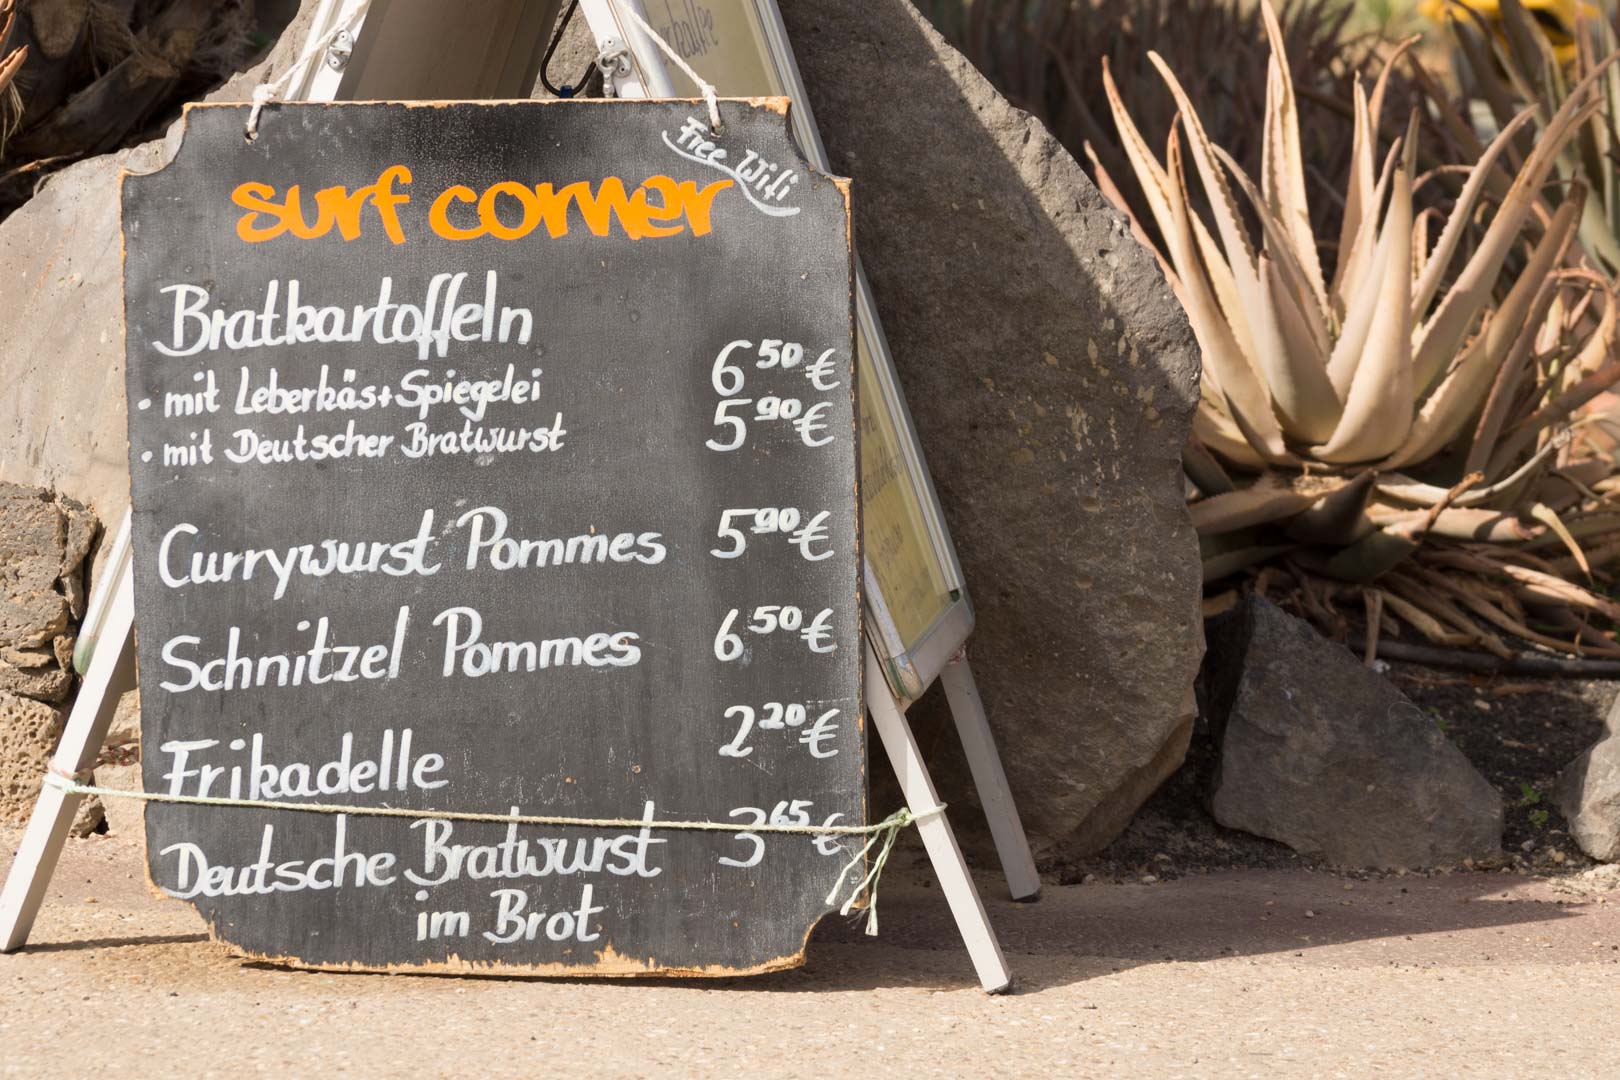 Free Wifi
surf corner
Bratkartoffeln
• mit Leberkäs+Spiegelei 6 50 €
• mit Deutscher Bratwurst 5 90 €
Currywurst Pommes 5 90 €
Schnitzel Pommes 6 50 €
Frikadelle 2 20 €
Deutsche Bratwurst 3 65 €
im Brot